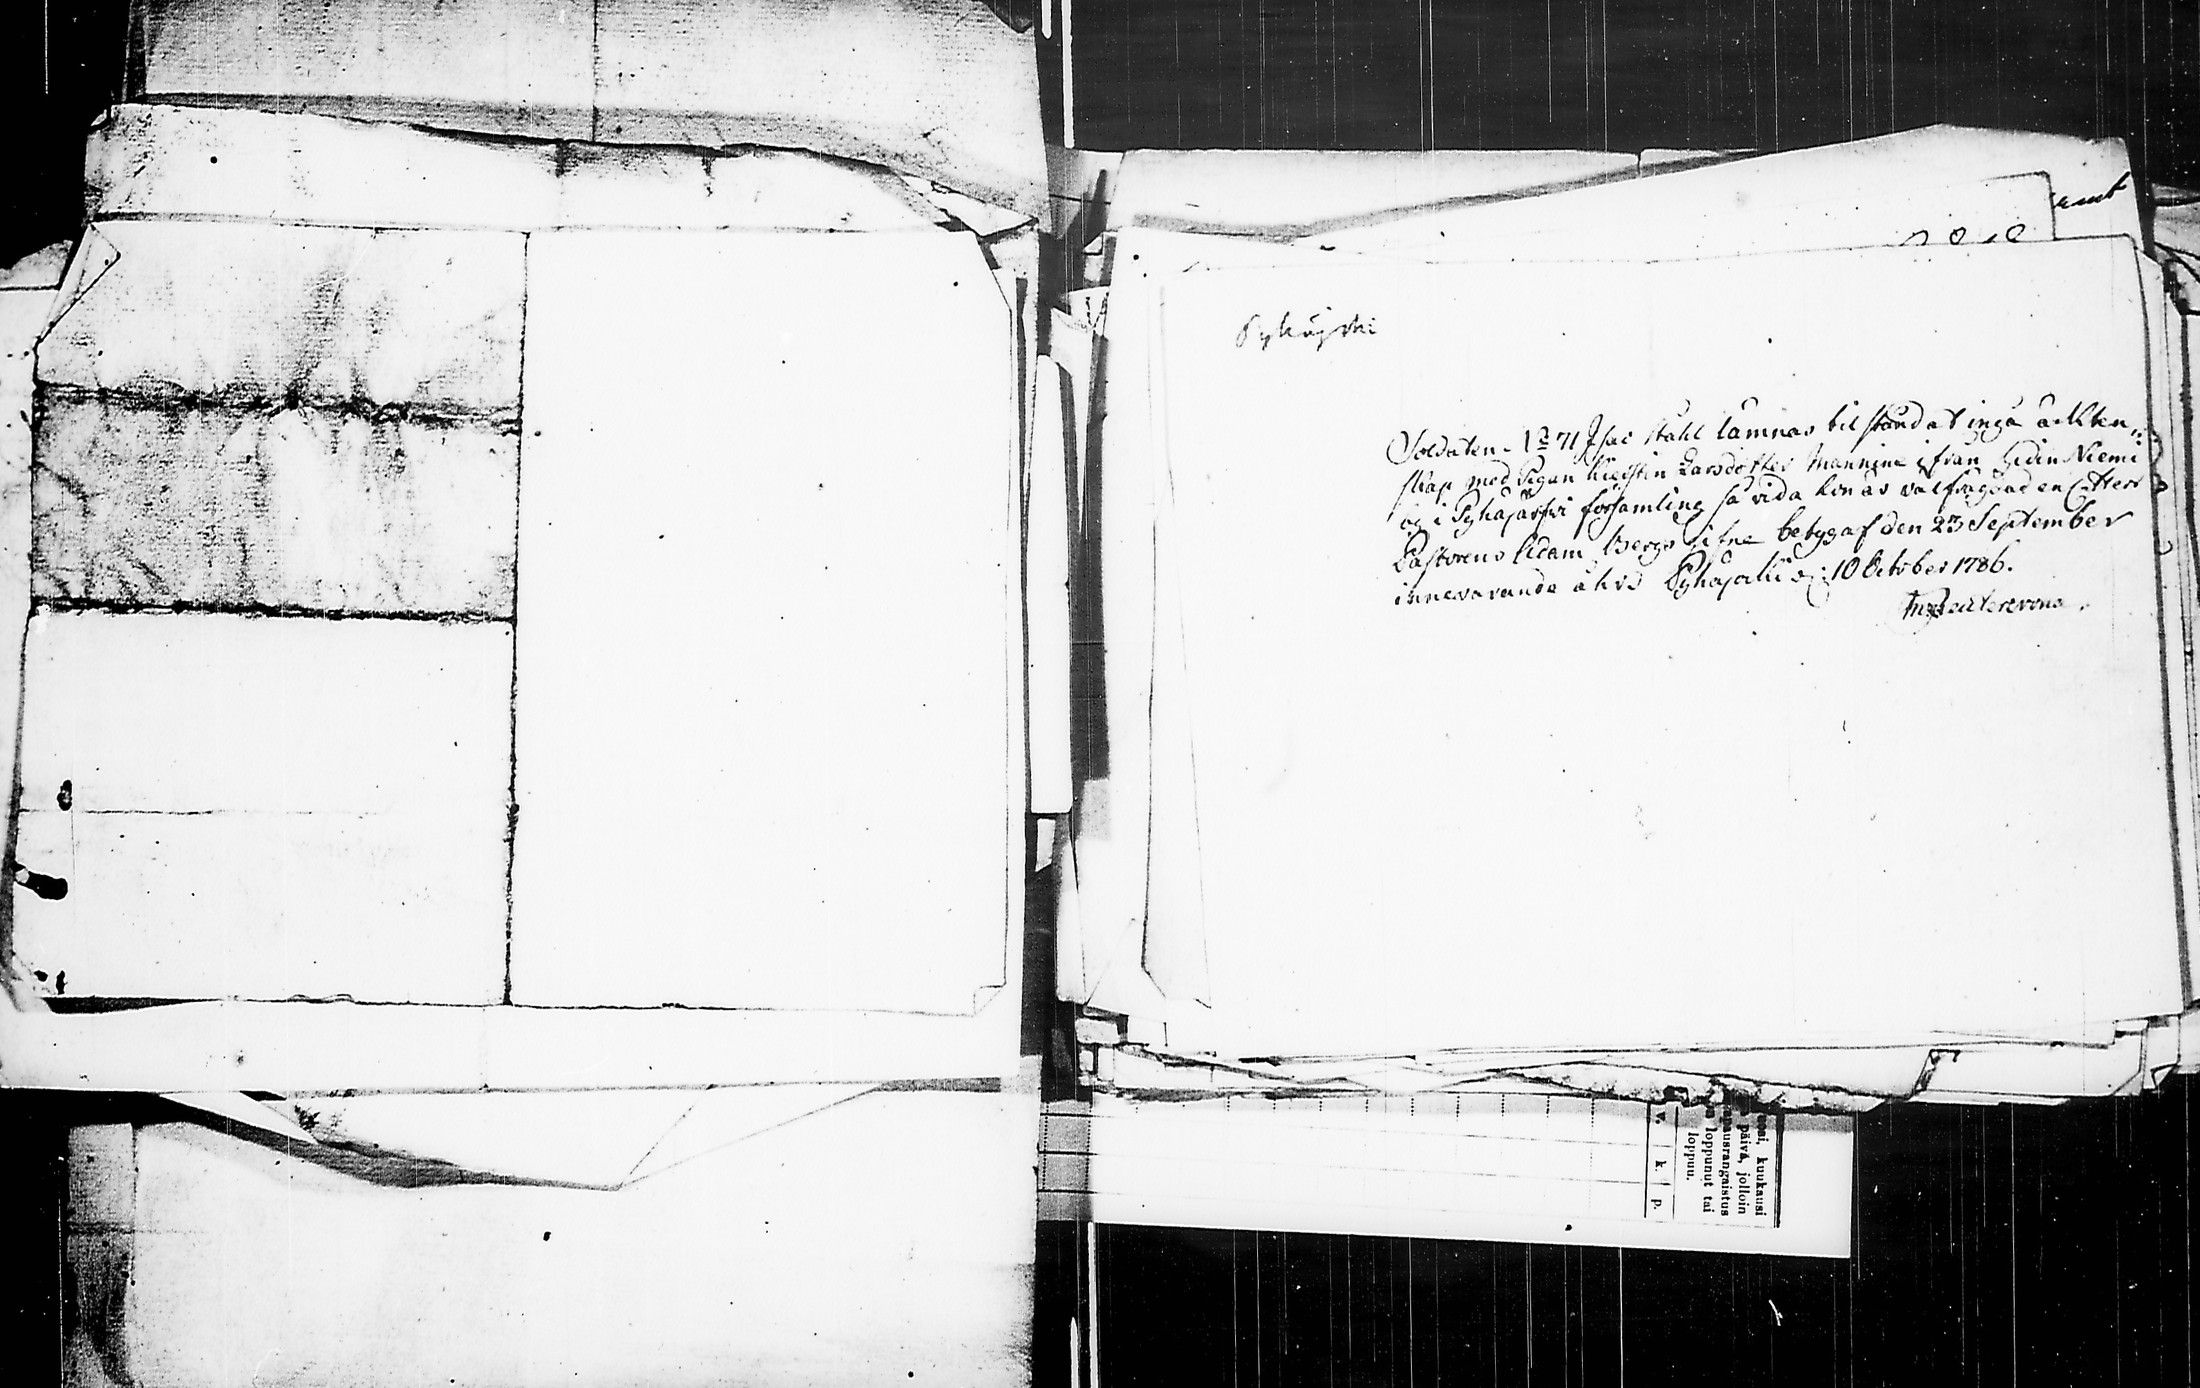 Pyhäjoki
Soldaten No 71 Isac Ståhl lämnas til stånd at ingå ächten„
skap med Pigan Kierstin Larsdotter Mannine ifrån Niemi
by i Pyhäjärfvi församling så vida hon är välfrägdad en
Pastorens Adam Bergs gifne betyg af den 23 September
innevarande åhrs Pyhäjocki d: 10 October 1786.
kuukausi
päivä, jolloin
pausrangaistus
loppunut tai
loppuu.
v. k. p.